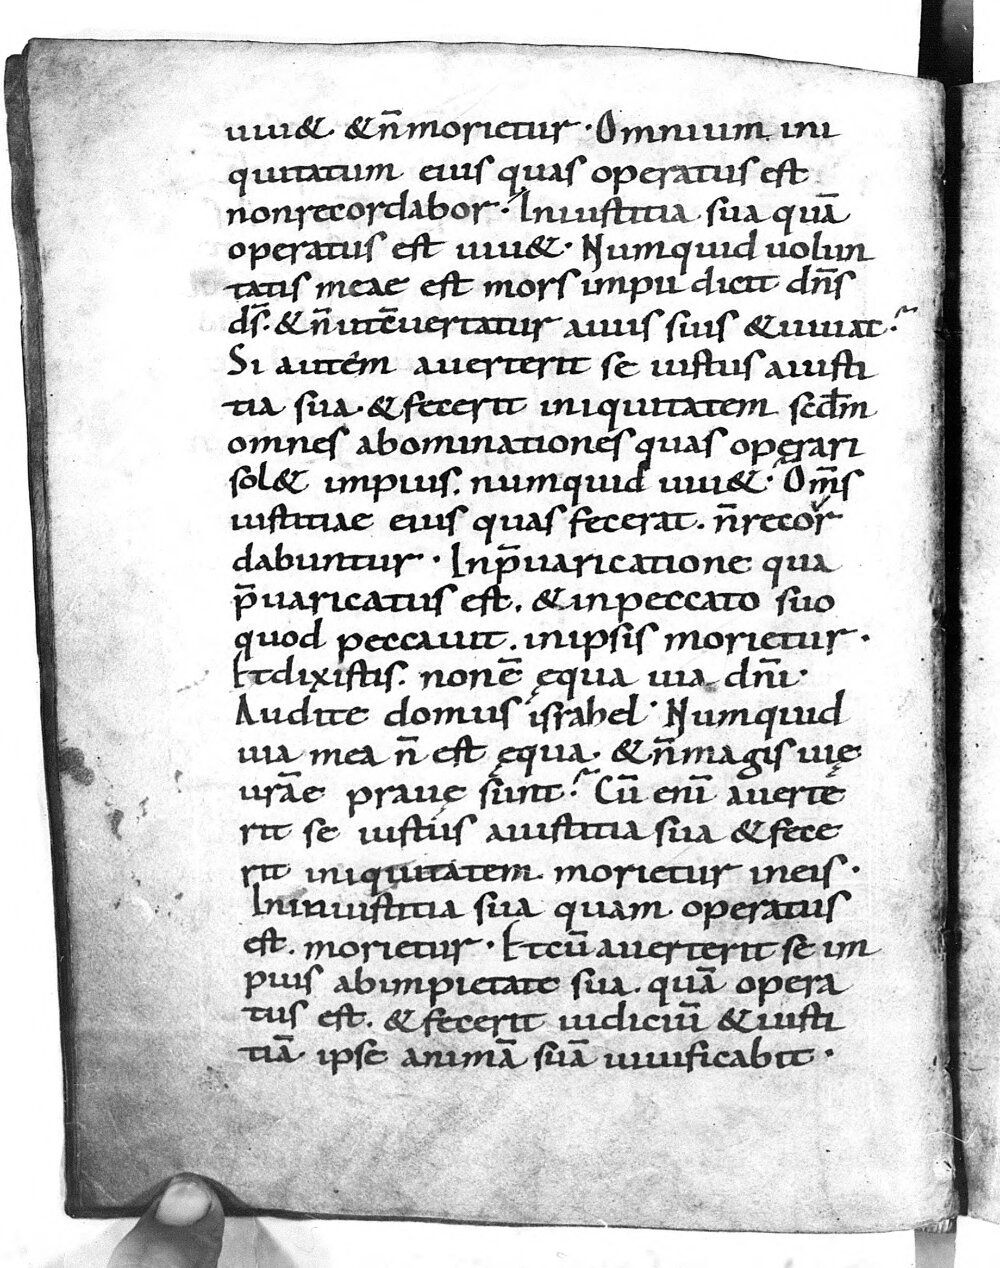 uiu& &n̄morietur · Omnium ini
quitatum eius quas operatus est
nonrecordabor · Iniustitia sua quā
operatus est uiu& · Numquid uolun
tatis meae est mors impii dicit dn̄s
ds̄ · &n̄utc̄uertatur auiis suis &uiuat ·
Si autém auerterit se iustus aiusti
tia sua · &fecerit iniquitatem scd̄m
omnes abominationes quas operari
sol& impius . numquid uiu& · Om̄s
iustitiae eius quas fecerat . n̄recor
dabuntur · Inp̄uaricatione qua
p̄uaricatus est . &inpeccato suo
quod peccauit . inipsis morietur ·
Etdixistis . nonē ęqua uia dn̄i ·
Audite domus israhel · Numquid
uia mea n̄ est ęqua · &n̄magis uię
urāe prauę sunt · Cū enī auerte
rit se iustus aiustitia sua &fece
rit iniquitatem morietur ineis ·
Ininiustitia sua quam operatus
est . morietur · Etcū auerterit se im
puis abimpietate sua . quā opera
tus est . &fecerit iudiciū &iusti
tiā ipse animā suā uiuificabit ·